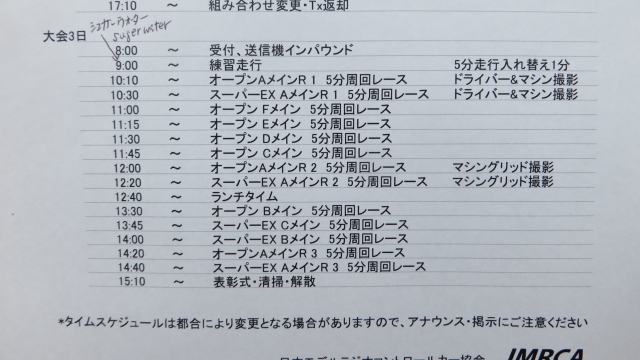 17:10 ～ 組み合わせ変更・Tx返却
大会3日
シュガーウォーター
suger water
8:00 ～ 受付、送信機インパウンド
9:00 ～ 練習走行 5分走行入れ替え1分
10:10 ～ オープンAメインR 1 5分周回レース ドライバー&マシン撮影
10:30 ～ スーパーEX AメインR 1 5分周回レース ドライバー&マシン撮影
11:00 ～ オープン Fメイン 5分周回レース
11:15 ～ オープン Eメイン 5分周回レース
11:30 ～ オープン Dメイン 5分周回レース
11:45 ～ オープン Cメイン 5分周回レース
12:00 ～ オープンAメインR 2 5分周回レース マシングリッド撮影
12:20 ～ スーパーEX AメインR 2 5分周回レース マシングリッド撮影
12:40 ～ ランチタイム
13:30 ～ オープン Bメイン 5分周回レース
13:45 ～ スーパーEX Cメイン 5分周回レース
14:00 ～ スーパーEX Bメイン 5分周回レース
14:20 ～ オープンAメインR 3 5分周回レース
14:40 ～ スーパーEX AメインR 3 5分周回レース
15:10 ～ 表彰式・清掃・解散
*タイムスケジュールは都合により変更となる場合がありますので、アナウンス・掲示にご注意ください
日本モデルラジオコントロールカー協会 JMRCA